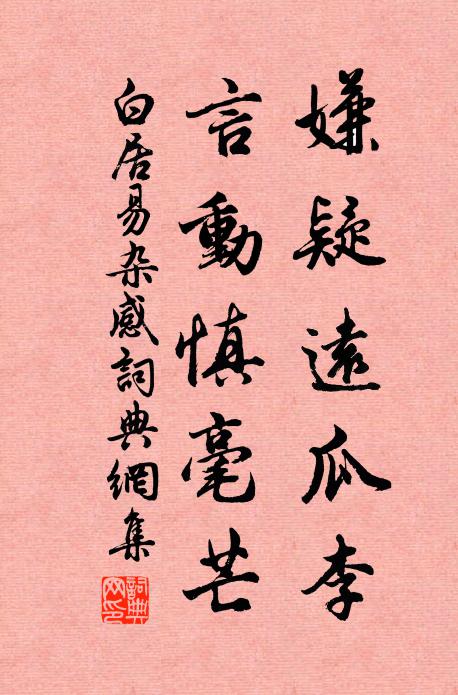 嫌疑遠瓜李
言動慎毫芒
白居易杂感詞典網集
詞典網印